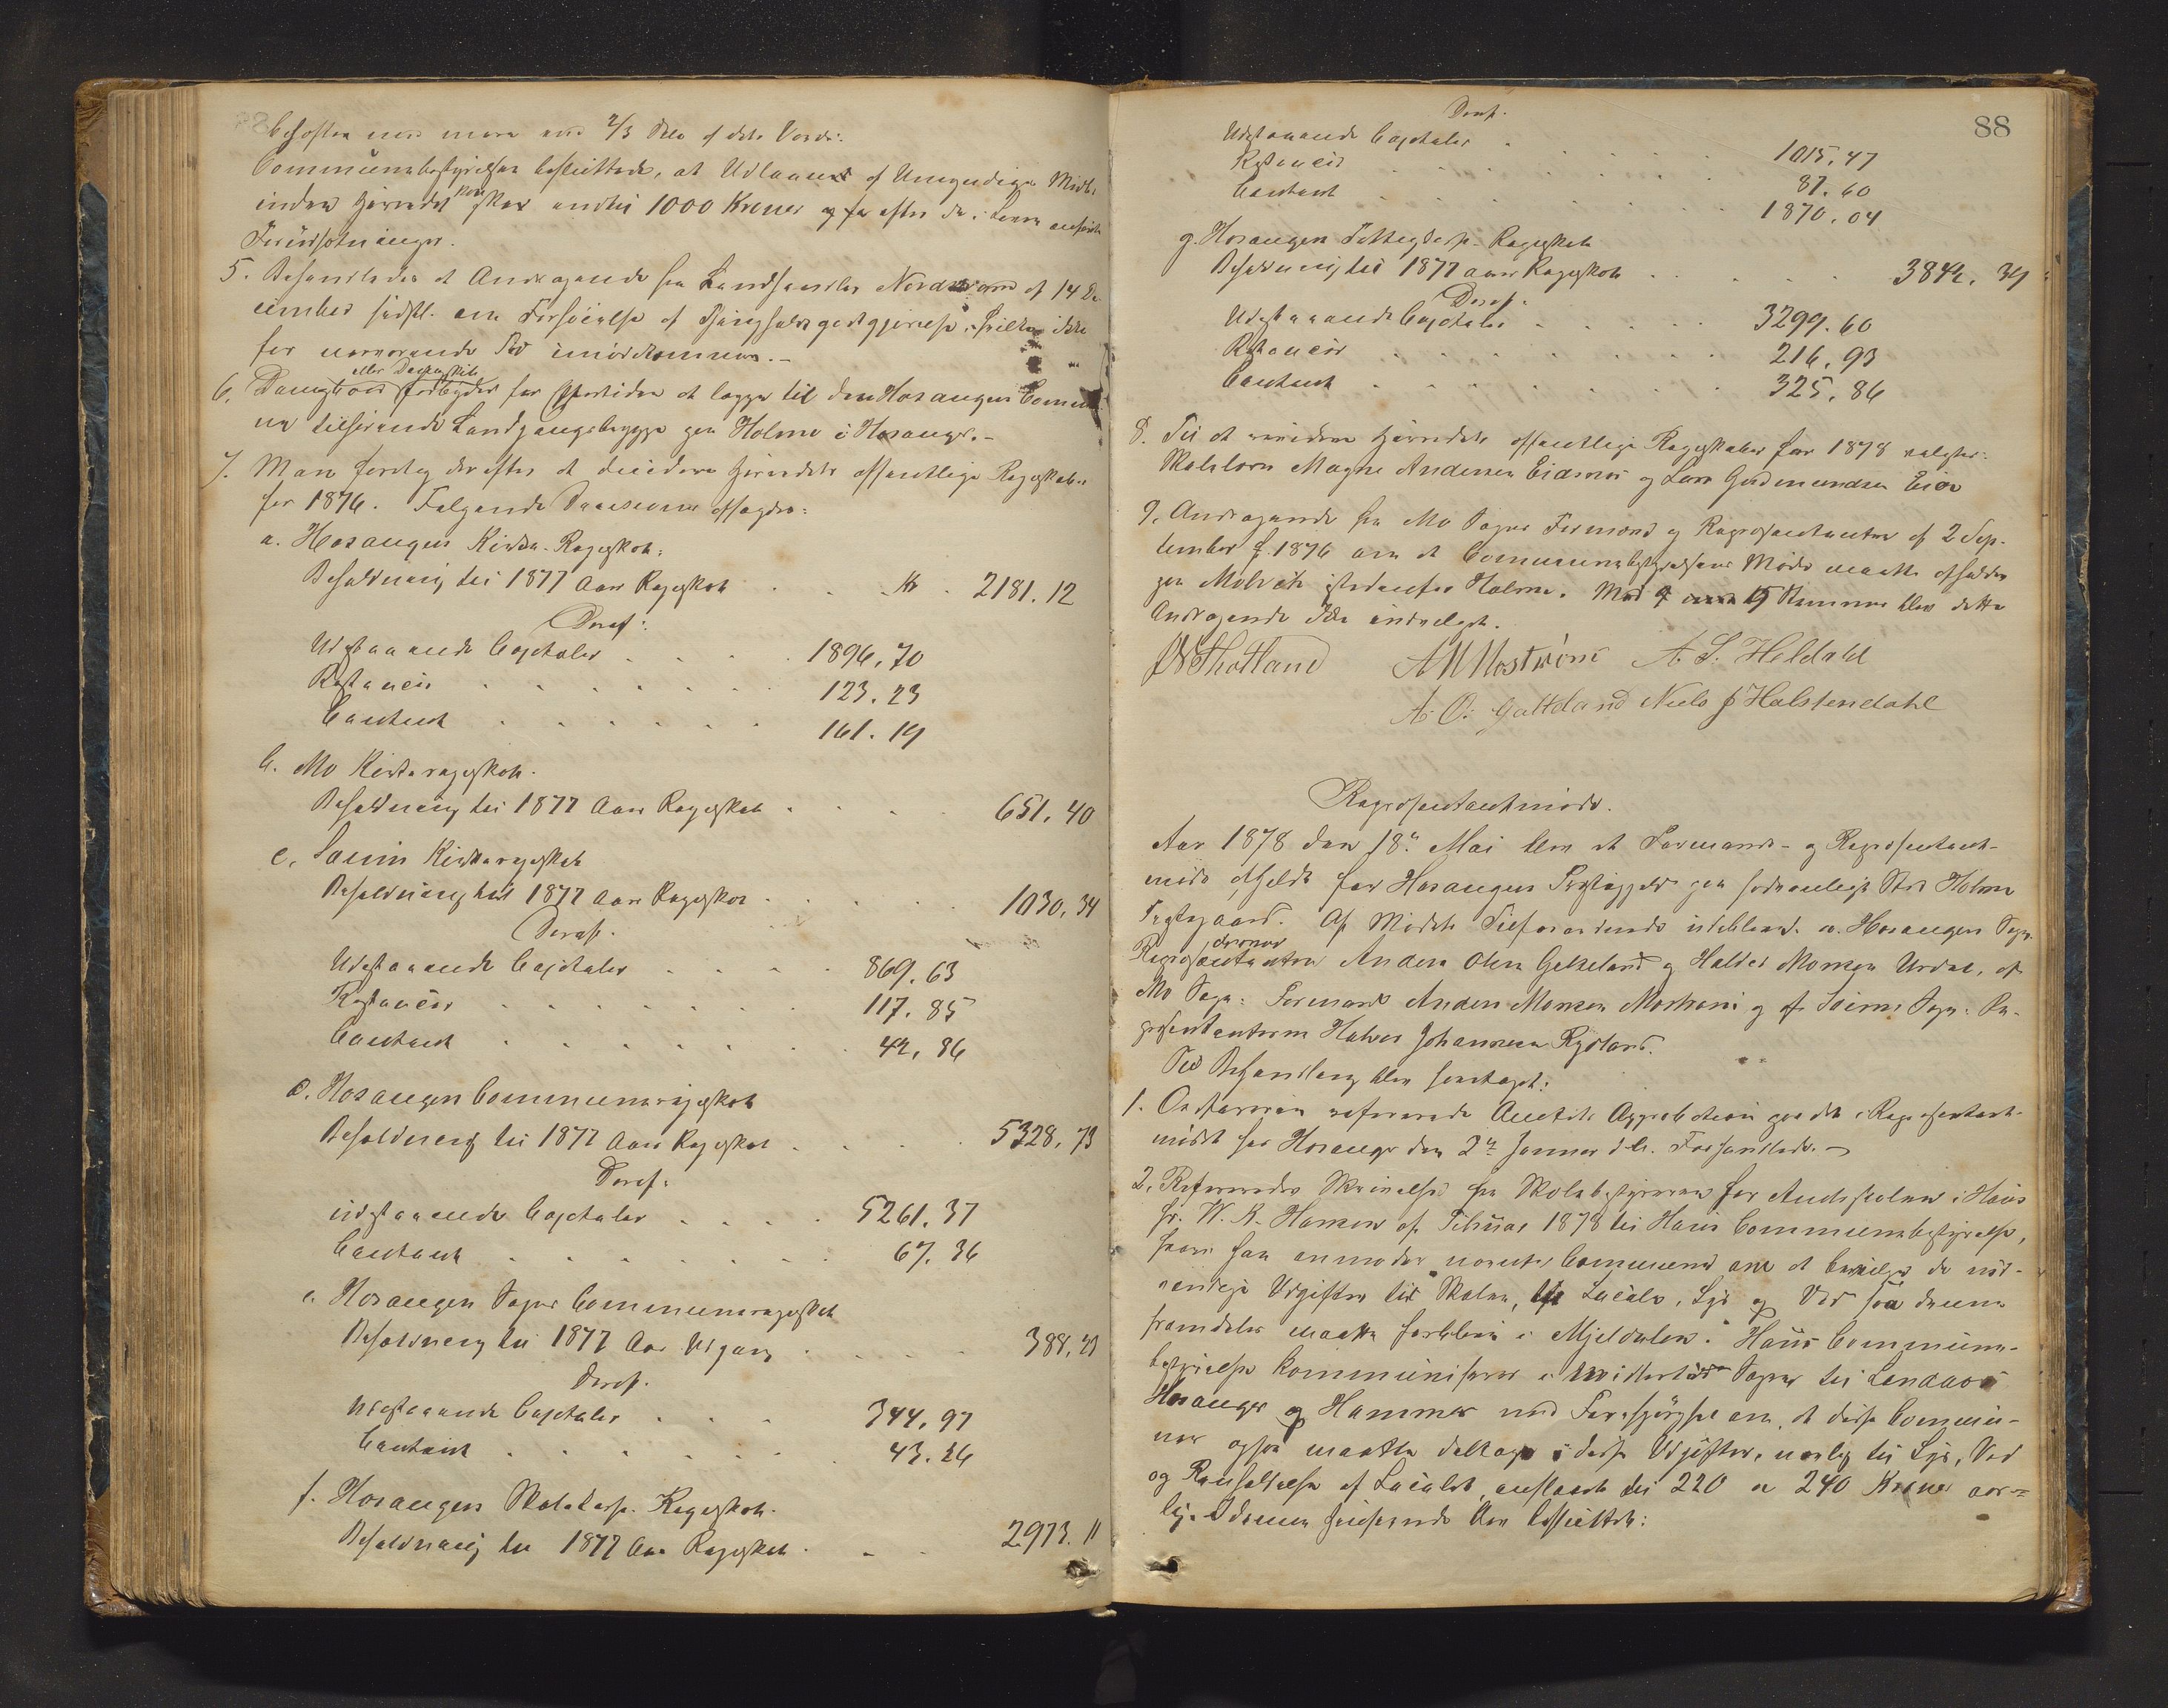 behæftes med mere end 2/3 Dele af dets Værdi.
Communebestyrelsen besluttede, at Udlaanet af Umyndiges Midler
inden Herredet kan skee indtil 1000 Kroner og da efter de i Loven anførte
Forudsætninger.
5. Behandledes et Andragende fra Landhandler Nordstrand af 14 De-
cember sidstl. om Forhøielse af Skydsgodtgjørelse, hvilken ikke
for nærværende blev imødekommen.-
6. Dampskibe eller Dagsskibe forbydes for Fremtiden at lægge til den Hosangers Commu-
ne tilhørende Landgangsbrygge paa Holme i Hosanger.-
7. Man foretog derefter at decidere Herredets offentlige Regnskaber
for 1876. Følgende Decisioner afsagdes:
a. Hosangers Kirke-Regnskab:
Beholdning til 1877 Aars Regnskab . . Kr. 2181.12
Deraf:
Udestaaende Capitaler . . . . 1896.70
Restancer . . . . . . 123.23
Contant . . . . . . 161.19
b. Mo Kirkeregnskab.
Beholdning til 1877 Aars Regnskab . . . 651.40
c. Sæim Kirkeregnskab
Beholdning til 1877 Aars Regnskab . . . . 1030,34
Deraf.
Udestaaende Capitaler . . . . 869.63
Restancer . . . . . . 117.85
Contant . . . . . . 42,86
d. Hosangers Communeregnskab
Beholdning til 1877 Aars Regnskab . . . . 5328,73
Deraf:
udestaaende Capitaler . . . . 5261.37
Contant . . . . . . 67.36
e. Hosangers Sogns Communeregnskab
Beholdning til 1877 Aars Udgang . . . . 388,23
Deraf.
Udestaaende Capitaler . . . 344,97
Contant . . . . . . 43.26
f. Hosangers Skolekasse-Regnskab.
Beholdning til 1877 Aars Regnskab . . . 2973.11
88
Deraf.
Udestaaende Capitaler . . . . . 1015.47
Restancer . . . . . . . 87.60
Contant . . . . . . . 1870.04
g. Hosangers Fattigkasse-Regnskab
Beholdning til 1877 Aars Regnskab . . . . 3842.39
Deraf.
Udestaaende Capitaler . . . . . 3299.60
Restancer . . . . . . . 216.93
Contant . . . . . . . 325.86
8. Til at revidere Herredets offentlige Regnskaber for 1878 valgtes:
Skolelærer Magne Andersen Eidsnes og Lars Gudmundsen Eide
9. Andragende fra Mo Sogns Formænd og Repræsentanter af 2 Sep-
tember f. 1876 om at Communebestyrelsens Møder maatte afholdes
paa Molvik istedenfor Holme. Med 9 mod 5 Stemmer blev dette
Andragende ikke indvilget.
A M Mostrøm A. S. Heldahl
A. O. Galteland Niels J Halstendahl
Repræsentantmøde.
Aar 1878 den 18de Mai blev et Formands- og Repræsentant-
møde afholdt for Hosangers Præstegjeld paa sædvanligt Sted Holme
Præstegaard. Af Mødets Tilforordnede udebleve. a. Hosangers Sogn
Repræsentanterne Anders Olsen Gekeland og Haldor Monsen Urdal, af
Mo Sogn: Formand Anders Monsen Mostrøm og af Sæims Sogn: Re-
præsentanterne Halvor Johannesen Rydland.
Til Behandling blev foretaget:
1. Ordføreren refererede Amtets Approbation paa det i Repræsentant-
mødet for Hosanger den 2den Januar d. A. Forhandlede. -
2. Refereredes Skrivelse fra Skolebestyreren for Amtsskolen i Haus
Hr. W. K. Hansen af Februar 1878 til Haus Communebestyrelse,
hvori han anmoder nævnte Commune om at bevilge de nød-
vendige Udgifter til Skolen, til Locale, Lys og Ved saa denne
fremdeles maatte forblive i Mjeldalen. Haus Commune-
bestyrelse kommuniserer i Midlertid Sagen til Lindaas
Hosanger og Hammer med Forespørgsel om, at disse Commu-
ner ogsaa maatte deltage i disse Udgifter, nemlig til Lys, Ved
og Renholdelse af Localet, anslaaet til 220 a 240 Kroner aar-
lig. I denne Henseende blev besluttet: